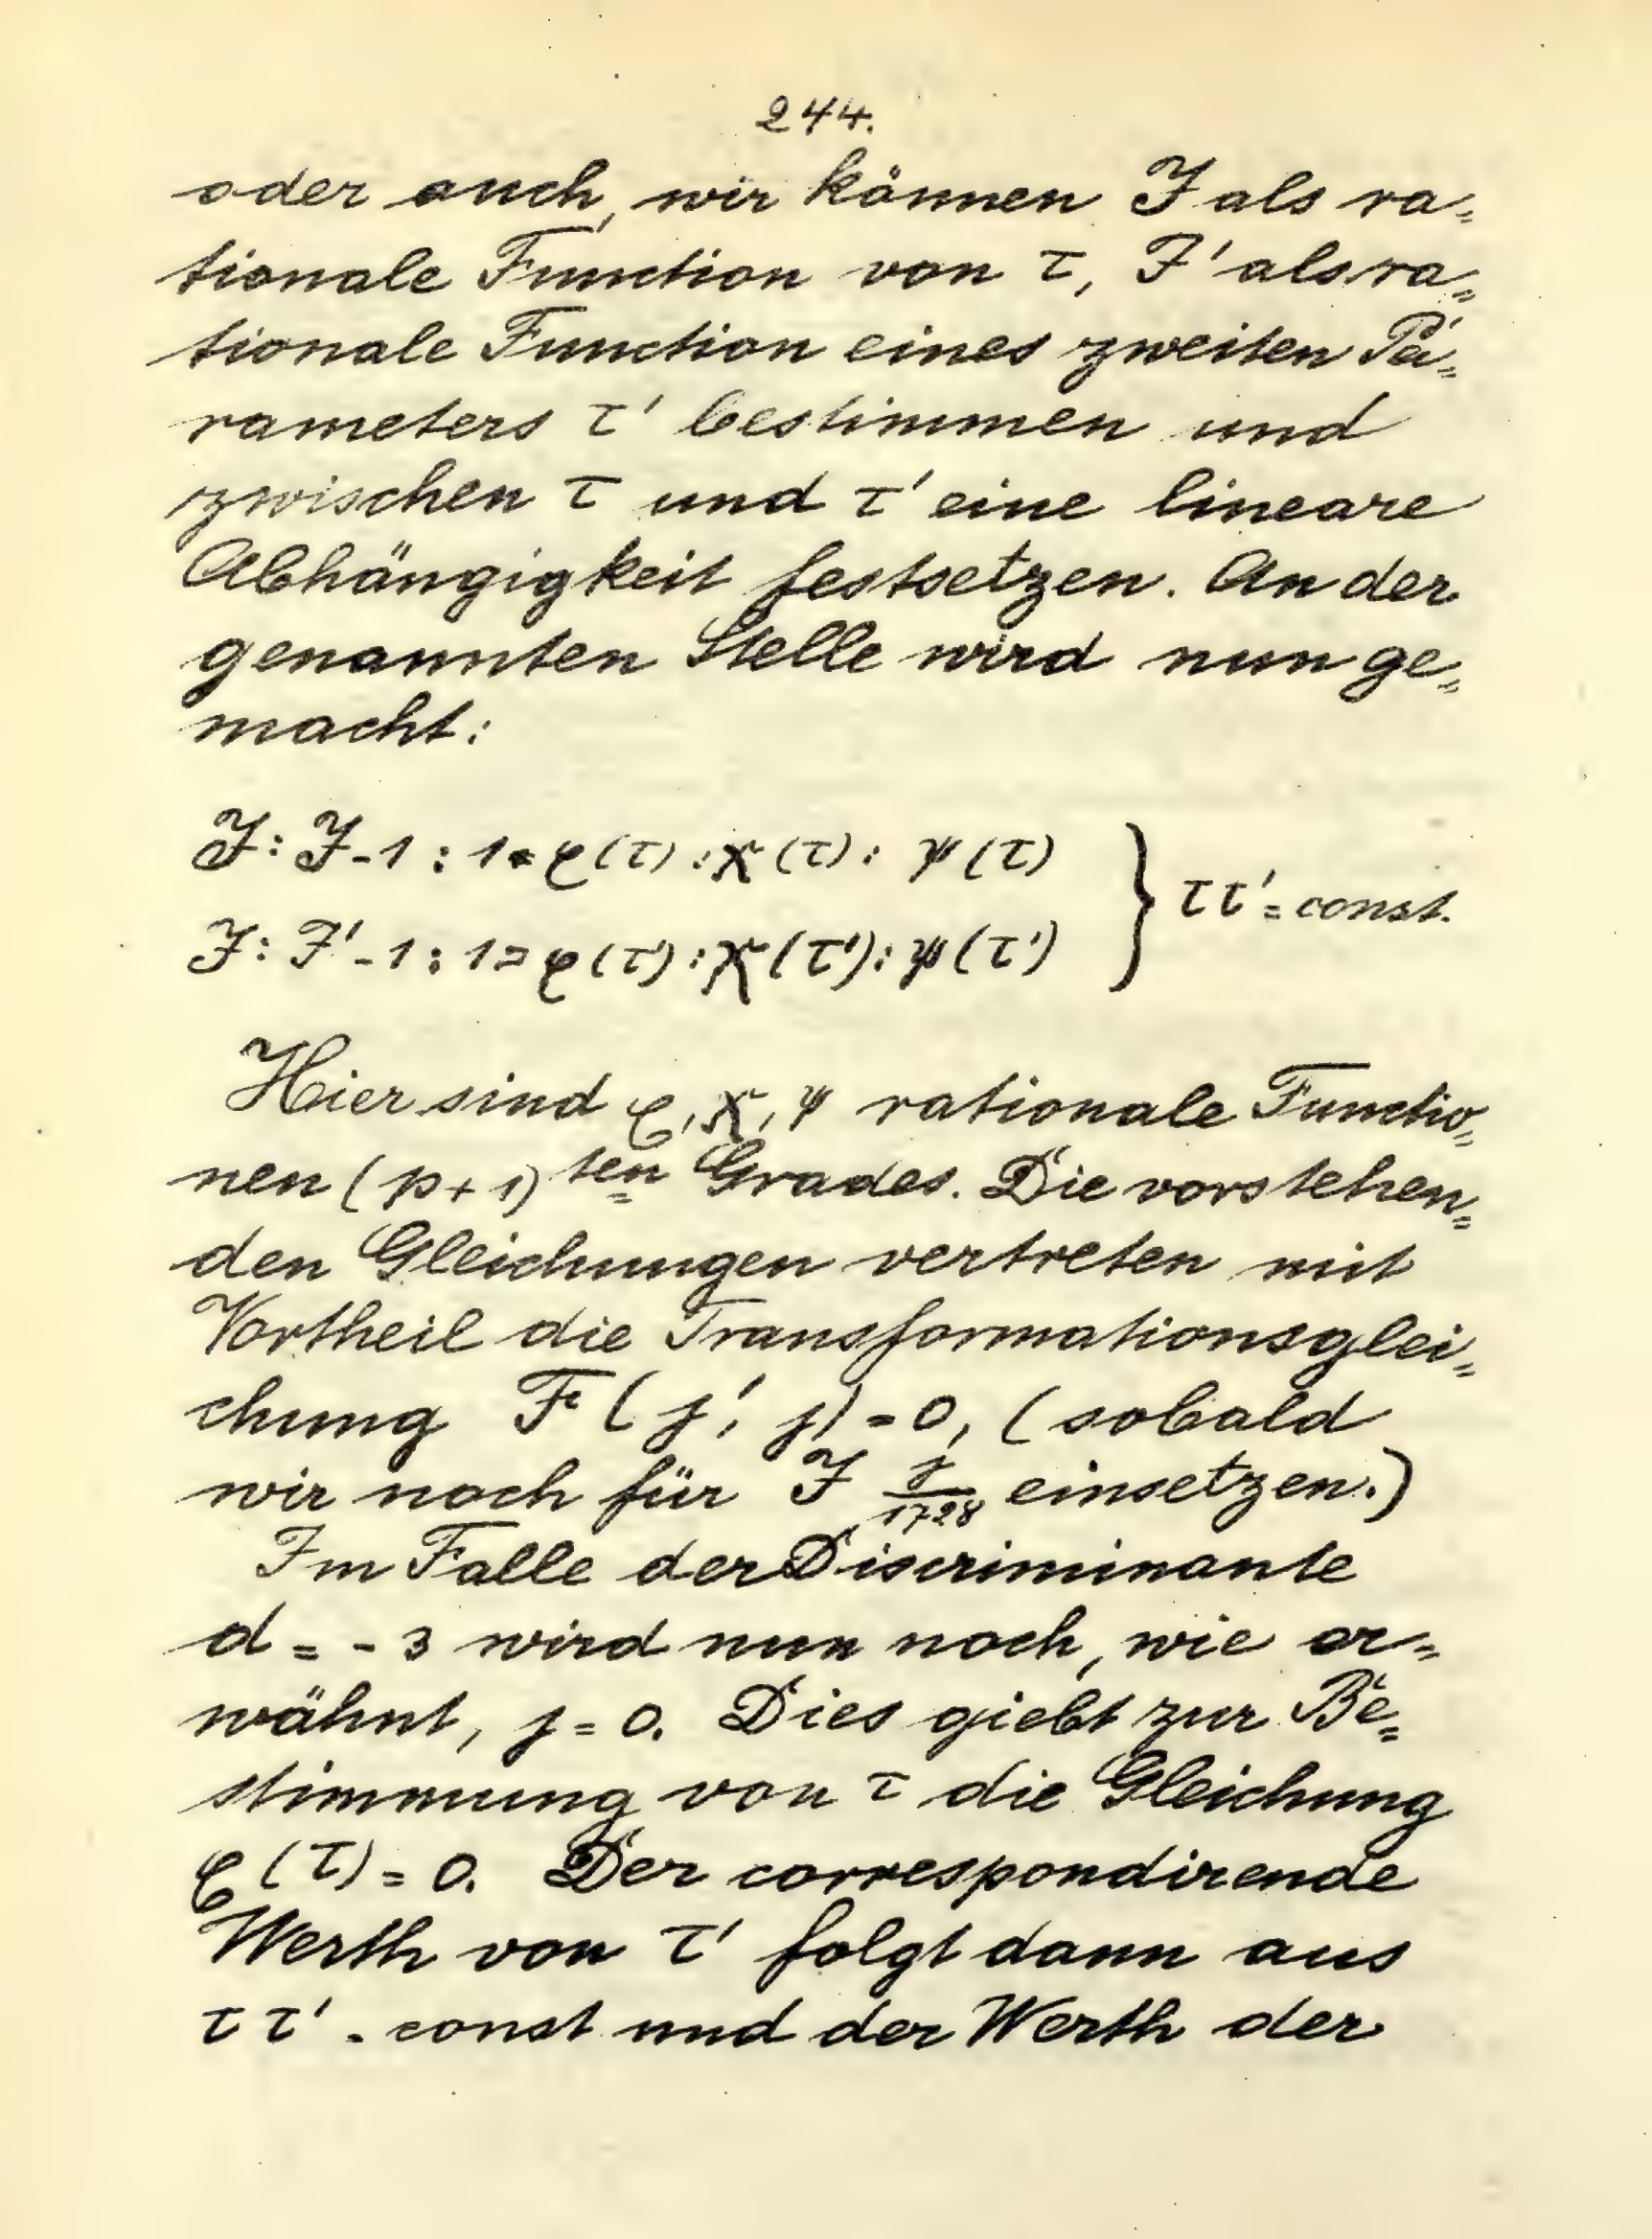 244.
oder auch, wir können J als ra=
tionale Function von τ, J' als ra=
tionale Function eines zweiten Pa=
rameters τ' bestimmen und
zwischen τ und τ' eine lineare
Abhängigkeit festsetzen. An der
genannten Stelle wird nun ge=
macht:
J : J-1 : 1 = φ(τ) : χ(τ) : ψ(τ)
} ττ' = const.
J : J'-1 : 1 = φ(τ') : χ(τ') : ψ(τ')
Hier sind φ, χ, ψ rationale Functio=
nen (p+1)ten Grades. Die vorstehen=
den Gleichungen vertreten mit
Vortheil die Transformationsglei=
chung F(j', j) = 0, (sobald
wir noch für J j/1728 einsetzen.)
Im Falle der Discriminante
d = -3 wird nun noch, wie er=
wähnt, j = 0. Dies giebt zur Be=
stimmung von τ die Gleichung
φ(τ) = 0. Der correspondirende
Werth von τ' folgt dann aus
ττ' = const und der Werth der